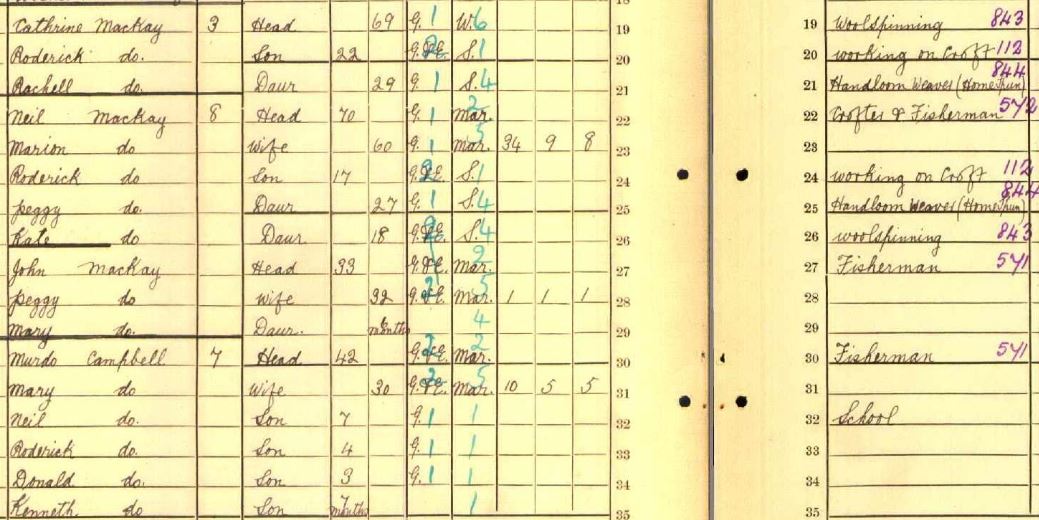 18
Cathrine Mackay 3 Head 69 G. 1 W. 6 19 Woolspinning 843
Roderick do. Son 22 G.&E. 2 S. 1 20 working on Croft 112
Rachell do. Daur 29 G. 1 S. 4 21 Handloom Weaver (Homespun) 844
Neil Mackay 8 Head 70 G. 1 Mar. 2 22 Crofter & Fisherman 572
Marion do Wife 60 G. 1 Mar. 5 34 9 8 23
Roderick do Son 17 G.&E. 2 S. 1 24 working on Croft 112
Peggy do. Daur 27 G. 1 S. 4 25 Handloom Weaver (Homespun) 844
Kate do Daur 18 G.&E. 2 S. 4 26 woolspinning 843
John Mackay Head 33 G.&E. 2 Mar. 2 27 Fisherman 571
Peggy do Wife 32 G.&E. 2 Mar. 5 1 1 1 28
Mary do. Daur. months 4 29
Murdo Campbell 7 Head 42 G.&E. 2 Mar. 2 30 Fisherman 571
Mary do Wife 30 G.&E. 2 Mar. 5 10 5 5 31
Neil do. Son 7 G. 1 1 32 School
Roderick do. Son 4 G. 1 1 33
Donald do. Son 3 G. 1 1 34
Kenneth do Son 7 months 1 35